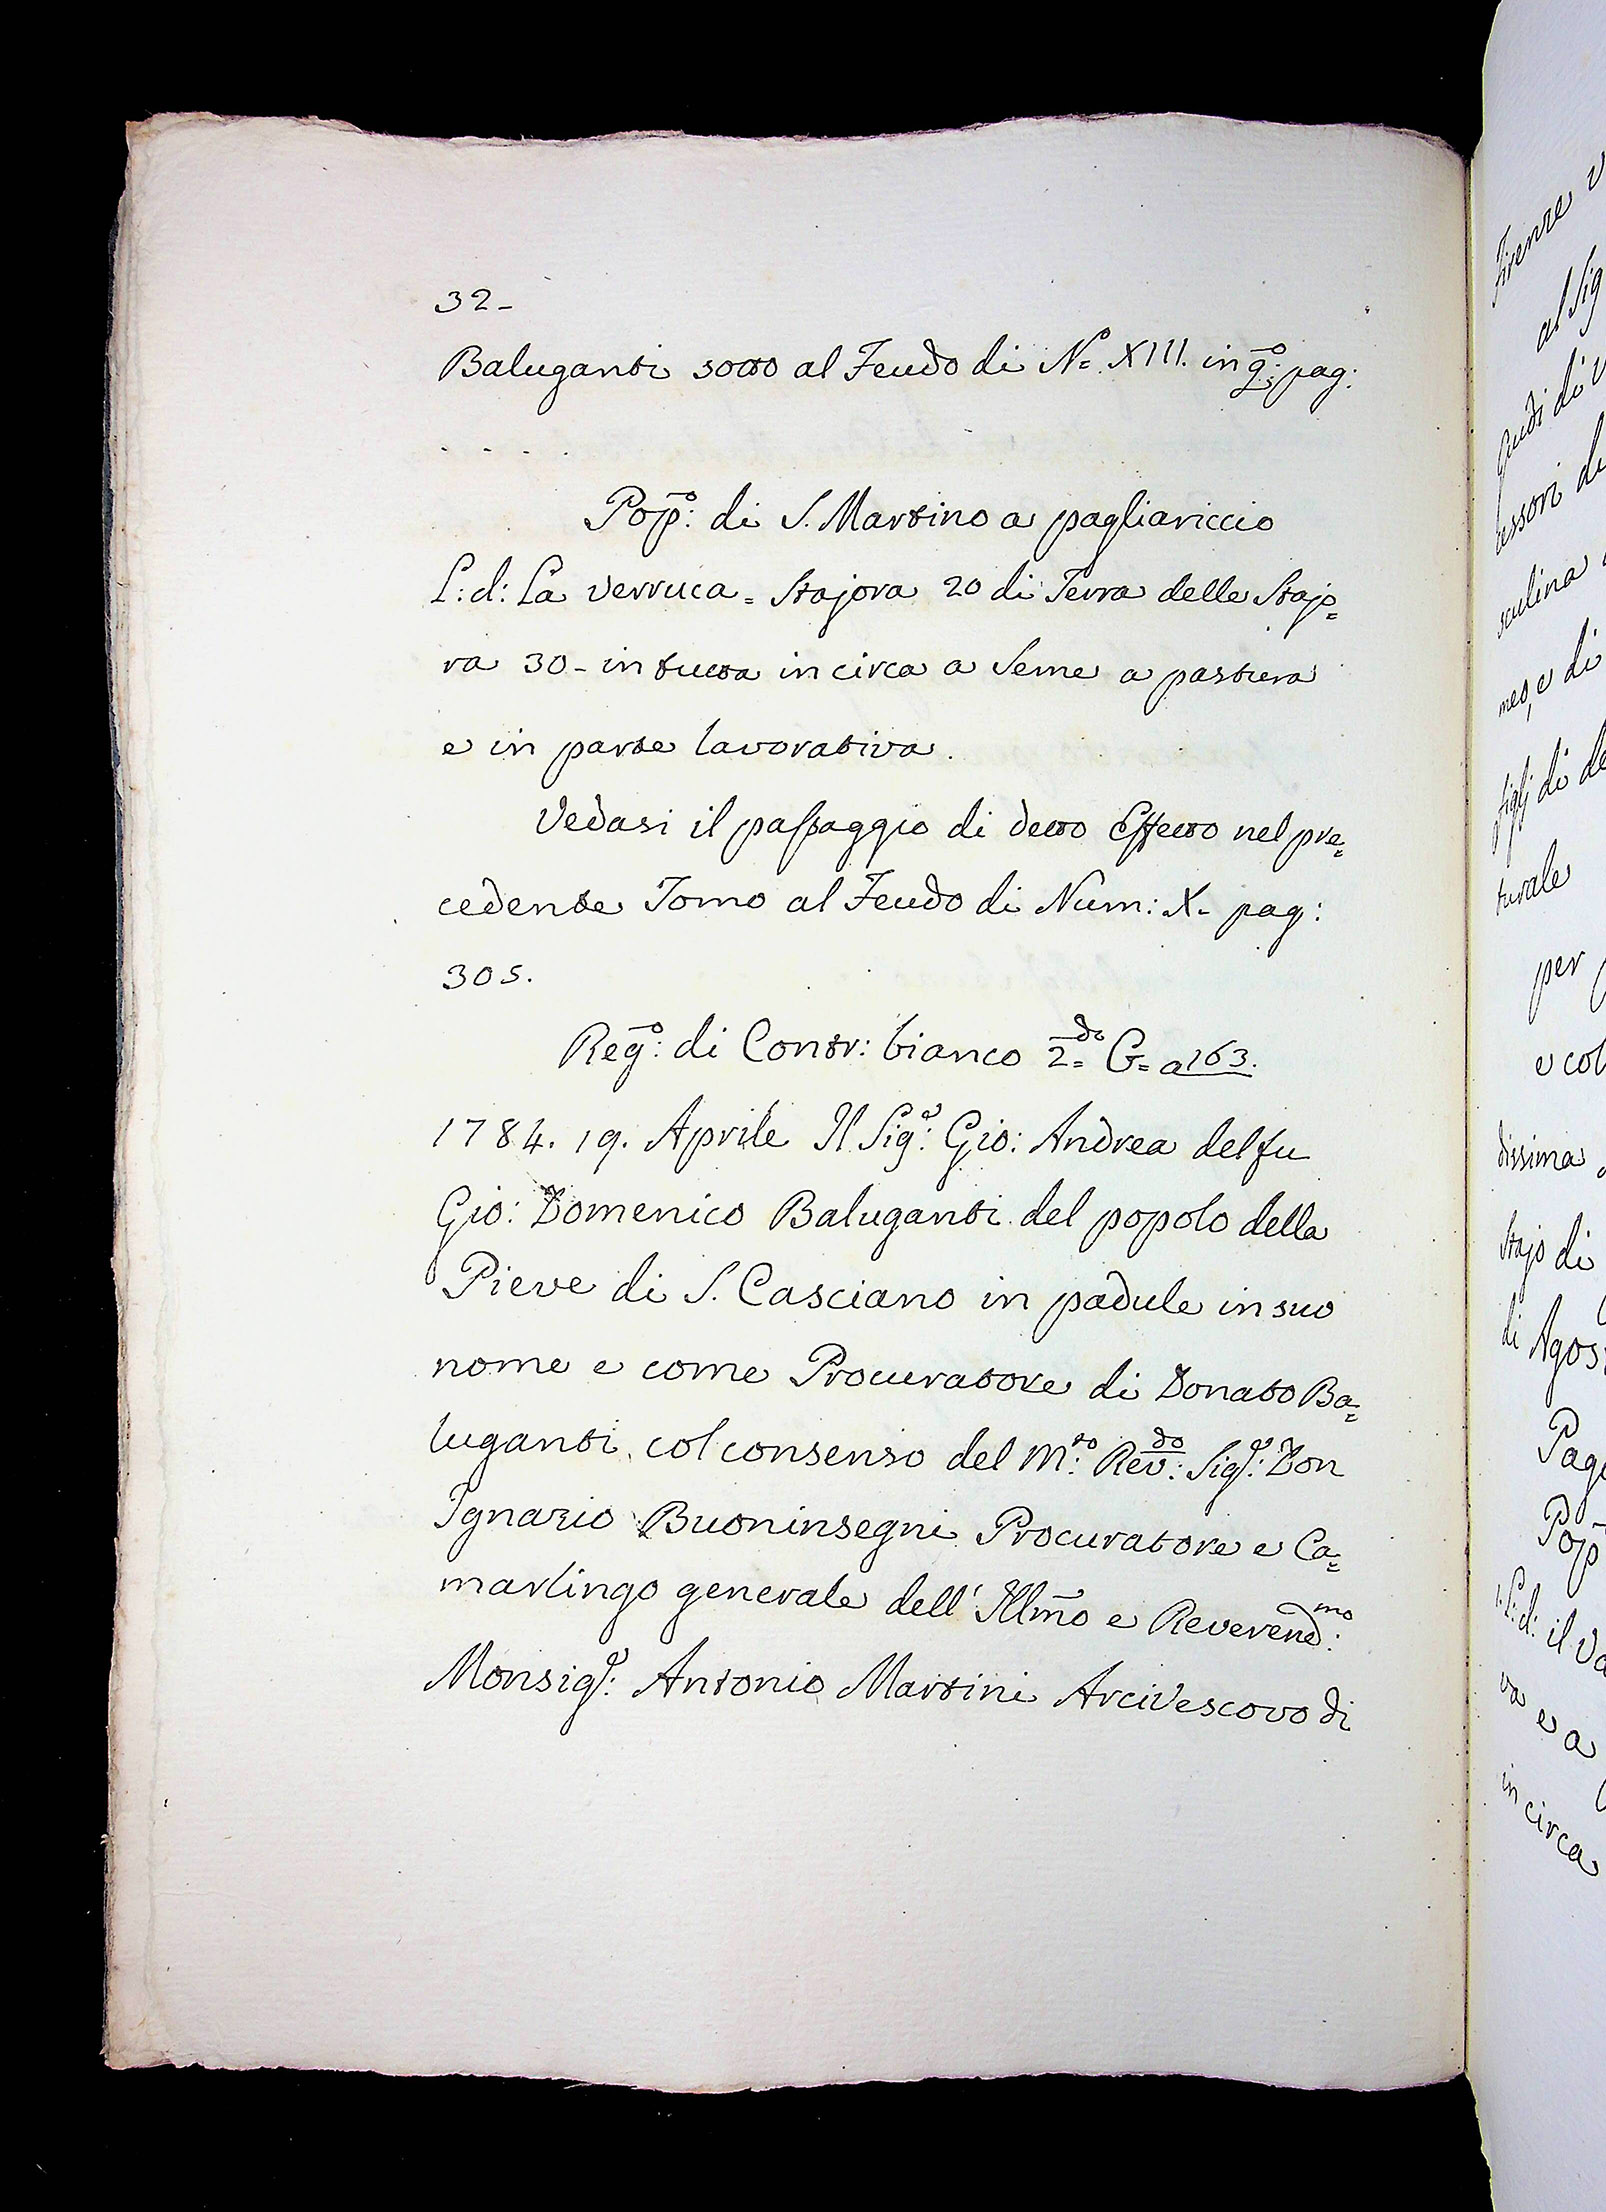 32-
Baluganti sotto al Feudo di N.º XIII. in q.º: pag:
. . . . .
Pop.º: di S. Martino a pagliariccio
L: d: La Verruca = Stajora 20 di Terra delle Stajo=
ra 30 - in tutta in circa a Seme a pastura
e in parte lavorativa.
Vedasi il passaggio di detto Effetto nel pre=
cedente Tomo al Feudo di Num: X. pag:
305.
Reg.º: di Contr: bianco 2.do G= a 163.
1784. 19. Aprile Il Sig.e: Gio: Andrea del fu
Gio: Domenico Baluganti del popolo della
Pieve di S. Casciano in padule in suo
nome e come Procuratore di Donato Ba=
luganti col consenso del M.to: Rev.do: Sig.e: Don
Ignazio Buoninsegni Procuratore e Ca=
marlingo generale dell' Illmo e Reverend.mo:
Monsig.e: Antonio Martini Arcivescovo di
Firenze
al Sig
di
essori
sculina
meo, e di
figlj di de
turale
per
e col
dissima
Stajo di
di Agos
Pag
Pop
L: d: il Va
va e a
in circa